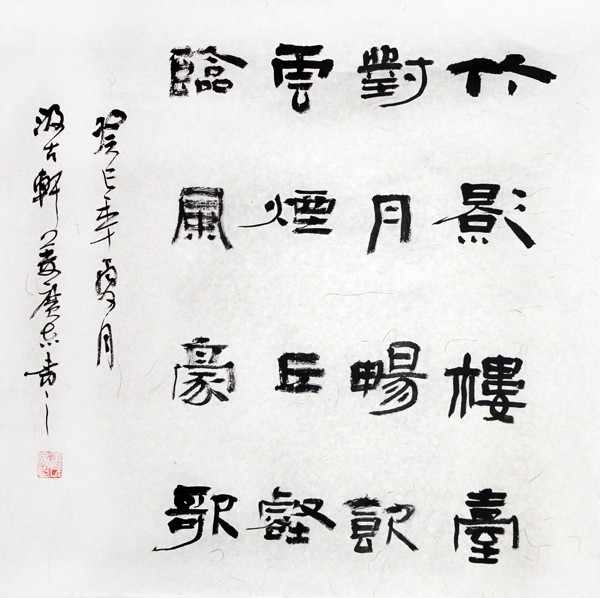 竹影樓臺
對月暢飲
雲煙丘壑
臨風豪歌
癸巳年夏月
汲古軒